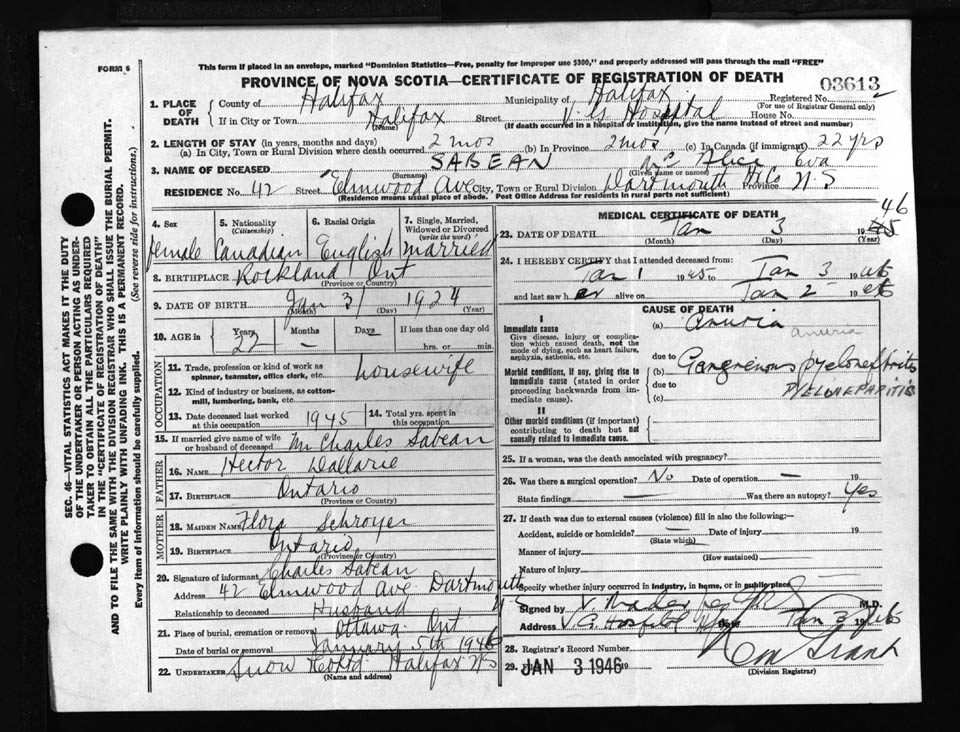 FORM 6
This form if placed in an envelope, marked "Dominion Statistics—Free, penalty for improper use $300," and properly addressed will pass through the mail "FREE"
PROVINCE OF NOVA SCOTIA—CERTIFICATE OF REGISTRATION OF DEATH
03613
1. PLACE OF DEATH County of Halifax Municipality of Halifax Registered No.
(For use of Registrar General only)
If in City or Town Halifax Street V. G. Hospital House No.
(Name) (If death occurred in a hospital or institution, give the name instead of street and number)
2. LENGTH OF STAY (in years, months and days)
(a) In City, Town or Rural Division where death occurred 2 mos (b) In Province 2 mos (c) In Canada (if immigrant) 22 yrs
3. NAME OF DECEASED SABEAN Alice Eva
(Surname) (Given name or names)
RESIDENCE No. 42 Street Elmwood Ave City, Town or Rural Division Dartmouth Hfx Co Province N S
(Residence means usual place of abode. Post Office Address for residents in rural parts not sufficient)
4. Sex 5. Nationality (Citizenship) 6. Racial Origin 7. Single, Married, Widowed or Divorced (write the word)
female Canadian English married
8. BIRTHPLACE Rockland Ont
(Province or Country)
9. DATE OF BIRTH Jan 3 1924
(Month) (Day) (Year)
10. AGE in Years Months Days If less than one day old
22 – hrs. or min.
OCCUPATION
11. Trade, profession or kind of work as spinner, teamster, office clerk, etc. housewife
12. Kind of industry or business, as cotton-mill, lumbering, bank, etc.
13. Date deceased last worked at this occupation 1945 14. Total yrs. spent in this occupation
15. If married give name of wife or husband of deceased Mr Charles Sabean
FATHER
16. NAME Hector Dallarie
17. BIRTHPLACE Ontario
(Province or Country)
MOTHER
18. MAIDEN NAME Flora Schroyer
19. BIRTHPLACE Ontario
(Province or Country)
20. Signature of informant Charles Sabean
Address 42 Elmwood Ave Dartmouth N S
Relationship to deceased Husband
21. Place of burial, cremation or removal Ottawa Ont
Date of burial or removal January 5th 1946
22. UNDERTAKER Snow Halifax N S
(Name and address)
MEDICAL CERTIFICATE OF DEATH
23. DATE OF DEATH Jan 3 1945 46
(Month) (Day) (Year)
24. I HEREBY CERTIFY that I attended deceased from:
Jan 1 1945 to Jan 3 1946
and last saw her alive on Jan 2 1946
CAUSE OF DEATH
I
Immediate cause
Give disease, injury or complication which caused death, not the mode of dying, such as heart failure, asphyxia, asthenia, etc.
(a) Anuria
anuria
due to
Morbid conditions, if any, giving rise to immediate cause (stated in order proceeding backwards from immediate cause).
(b) Gangrenous pyelonephritis
due to
(c)
II
Other morbid conditions (if important) contributing to death but not causally related to immediate cause.
25. If a woman, was the death associated with pregnancy?
26. Was there a surgical operation? No Date of operation — 19
State findings — Was there an autopsy? Yes
27. If death was due to external causes (violence) fill in also the following:—
Accident, suicide or homicide? — Date of injury 19
(State which)
Manner of injury
(How sustained)
Specify whether injury occurred in industry, in home, or in public place
Signed by M.D.
Address V. G. Hospital Date Jan 3 1946
28. Registrar's Record Number
29. JAN 3 1946 19
(Division Registrar)
SEC. 46—VITAL STATISTICS ACT MAKES IT THE DUTY
OF THE UNDERTAKER OR PERSON ACTING AS UNDER-
TAKER TO OBTAIN ALL THE PARTICULARS REQUIRED
IN THE "CERTIFICATE OF REGISTRATION OF DEATH"
AND TO FILE THE SAME WITH THE DIVISION REGISTRAR WHO SHALL ISSUE THE BURIAL PERMIT.
WRITE PLAINLY WITH UNFADING INK. THIS IS A PERMANENT RECORD.
Every item of information should be carefully supplied. (See reverse side for instructions.)